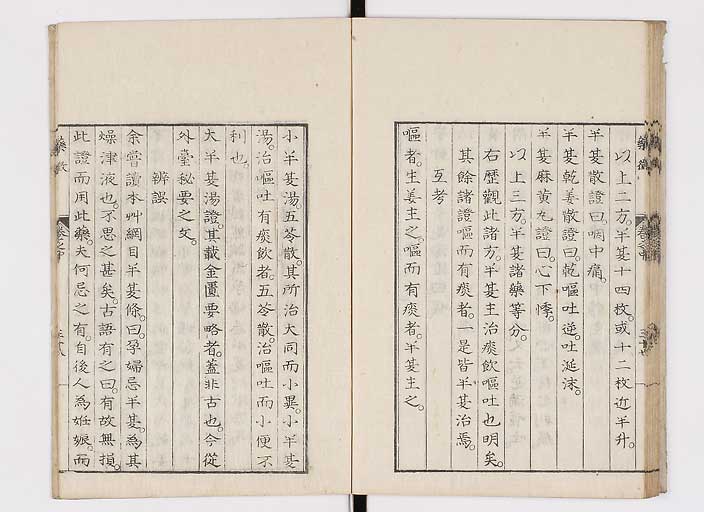 以上二方。半䕀十四枚。或十二枚近半升。
半䕀散證曰。咽中痛。
半䕀乾姜散證曰。乾嘔吐逆。吐涎沫。
半䕀麻黃丸證曰。心下悸。
以上三方。半䕀諸藥等分。
右歷觀此諸方。半䕀主治痰飲嘔吐也明矣。
其餘諸證嘔而有痰者。一是皆半䕀治焉。
互考
嘔者。生姜主之。嘔而有痰者。半䕀主之。
小半䕀湯。五苓散。其所治大同而小異。小半䕀
湯。治嘔吐有痰飲者。五苓散。治嘔吐而小便不
利也。
大半䕀湯證。其載金匱要略者。蓋非古也。今從
外臺秘要之文。
辨誤
余嘗讀本艸綱目半䕀條。曰。孕婦忌半䕀。為其
燥津液也。不思之甚矣。古語有之曰。有故無損。
此證而用此藥。夫何忌之有。自後人為妊娠。而
藥徵
卷之中